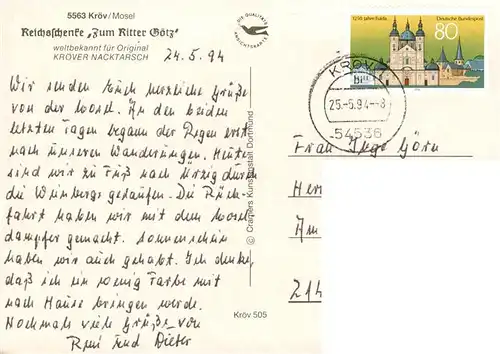 5563 Kröv/Mosel
Reichsschenke "Zum Ritter Götz"
weltbekannt für Original
KRÖVER NACKTARSCH
24.5.94
Wir senden Euch herzliche Grüße
von der Mosel. An den beiden
letzten Tagen begann der Regen erst
nach unseren Wanderungen. Heute
sind wir zu Fuß nach Ürzig durch
die Weinberge gelaufen. Die Rück-
fahrt haben wir mit dem Mosel
dampfer gemacht. Sonnenschein
haben wir auch gehabt. Ich denke,
daß ich ein wenig Farbe mit
nach Hause bringen werde.
Nochmals viele Grüße von
Reni und Dieter
DIE QUALITÄTS
ANSICHTSKARTE
© Cramers Kunstanstalt Dortmund
Kröv 505
1250 Jahre Fulda
Deutsche Bundespost
80
KRÖV
25.-5.94-8
54536
Frau Inge Görn
Her
Am
214